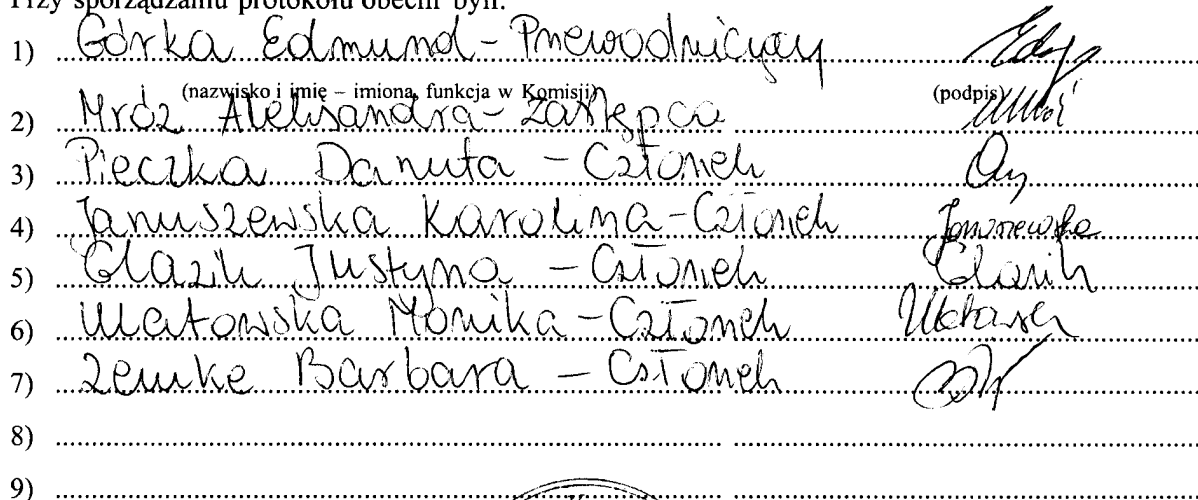 Przy sporządzaniu protokołu obecni byli:
1) Górka Edmund - Przewodniczący
(nazwisko i imię – imiona, funkcja w Komisji) (podpis)
2) Mróz Aleksandra - Zastępca Mróz
3) Pieczka Danuta - Członek
4) Januszewska Karolina - Członek Januszewska
5) Glazik Justyna - Członek Glazik
6) Watowska Monika - Członek
7) Zemke Barbara - Członek
8)
9)